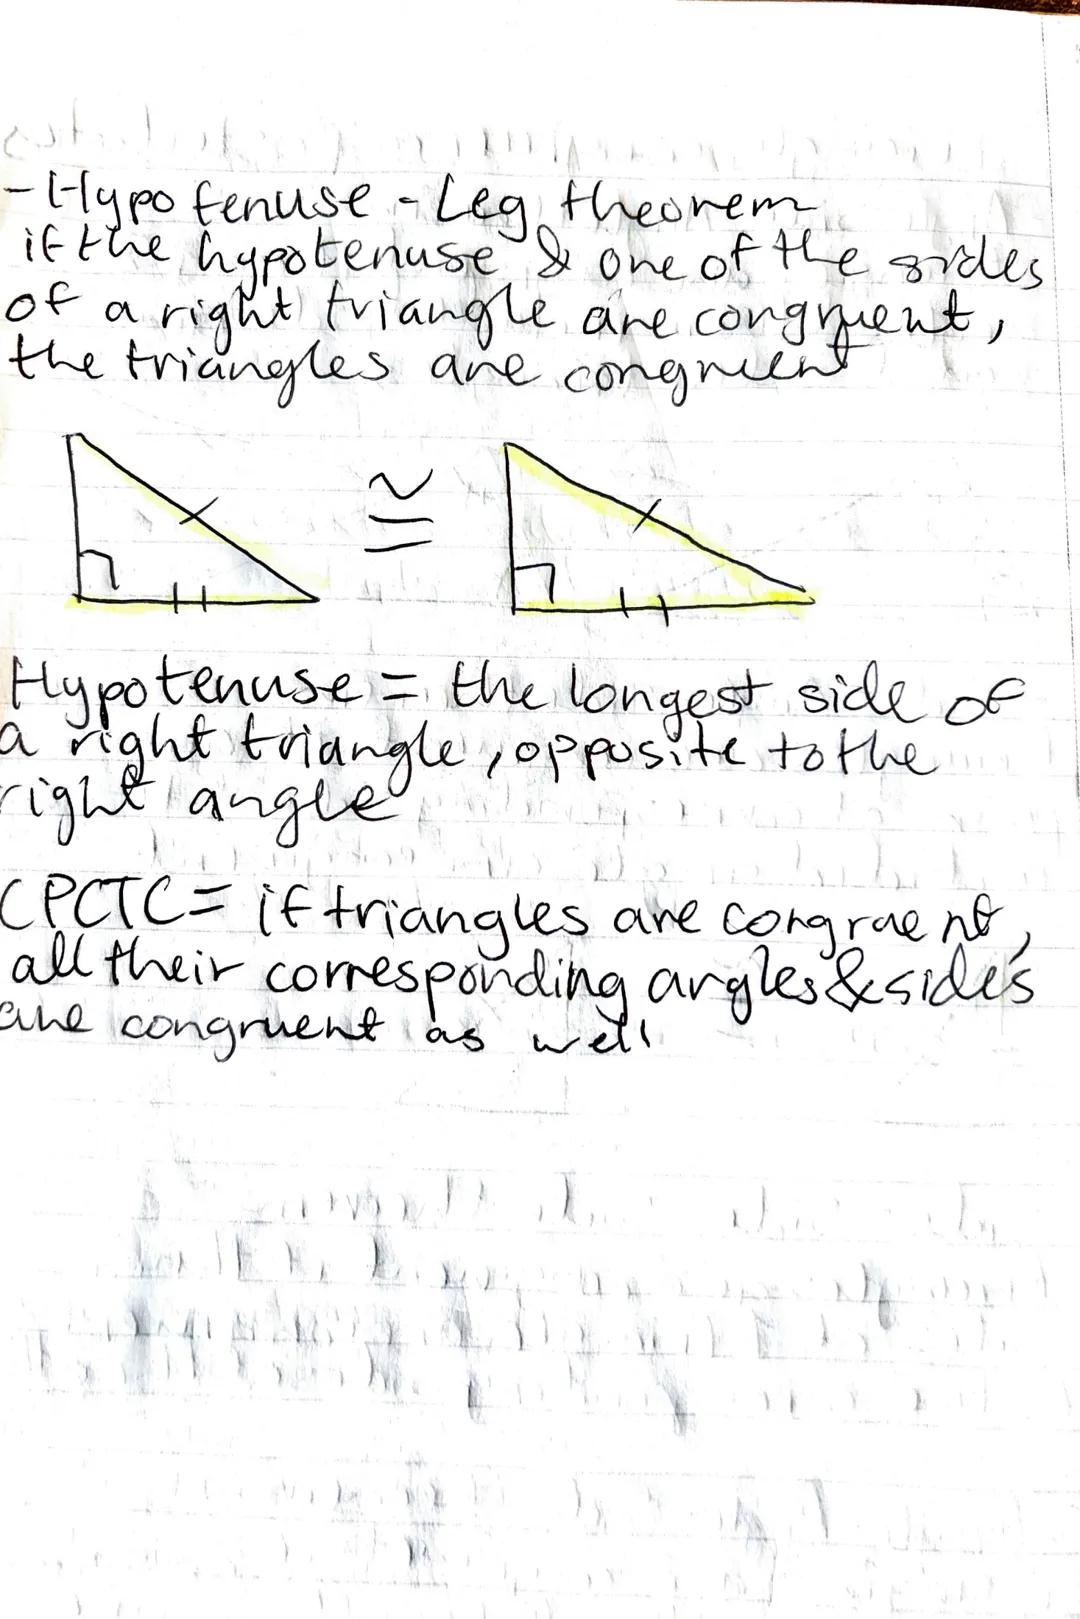 - Hypotenuse - Leg theorem
if the hypotenuse & one of the sides
of a right triangle are congruent,
the triangles are congruent
≅
Hypotenuse = the longest side of
a right triangle, opposite to the
right angle
CPCTC = if triangles are congruent,
all their corresponding angles & sides
are congruent as well